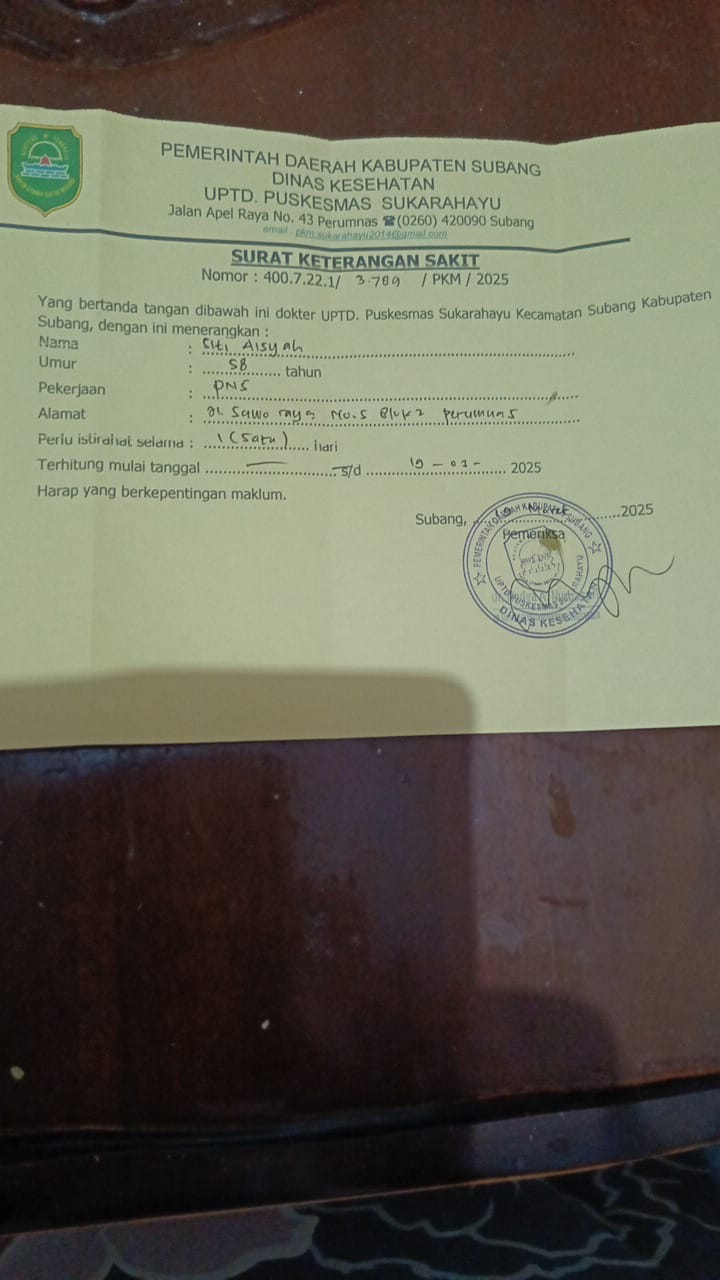 PEMERINTAH DAERAH KABUPATEN SUBANG
DINAS KESEHATAN
UPTD. PUSKESMAS SUKARAHAYU
Jalan Apel Raya No. 43 Perumnas ☎(0260) 420090 Subang
email pkm.sukarahayu2014@gmail.com
SURAT KETERANGAN SAKIT
Nomor : 400.7.22.1/ 3.789 / PKM / 2025
Yang bertanda tangan dibawah ini dokter UPTD. Puskesmas Sukarahayu Kecamatan Subang Kabupaten
Subang, dengan ini menerangkan :
Nama : Siti Aisyah
Umur : 58 tahun
Pekerjaan : PNS
Alamat : Jl. Sawo raya No.5 Blok 2 perumnas
Perlu istirahat selama : 1 (Satu) Hari
Terhitung mulai tanggal — s/d 19 - 03 - 2025
Harap yang berkepentingan maklum.
Subang, 19 Maret 2025
Pemeriksa
PEMERINTAH DAERAH KABUPATEN SUBANG
UPTD PUSKESMAS SUKARAHAYU
DINAS KESEHATAN